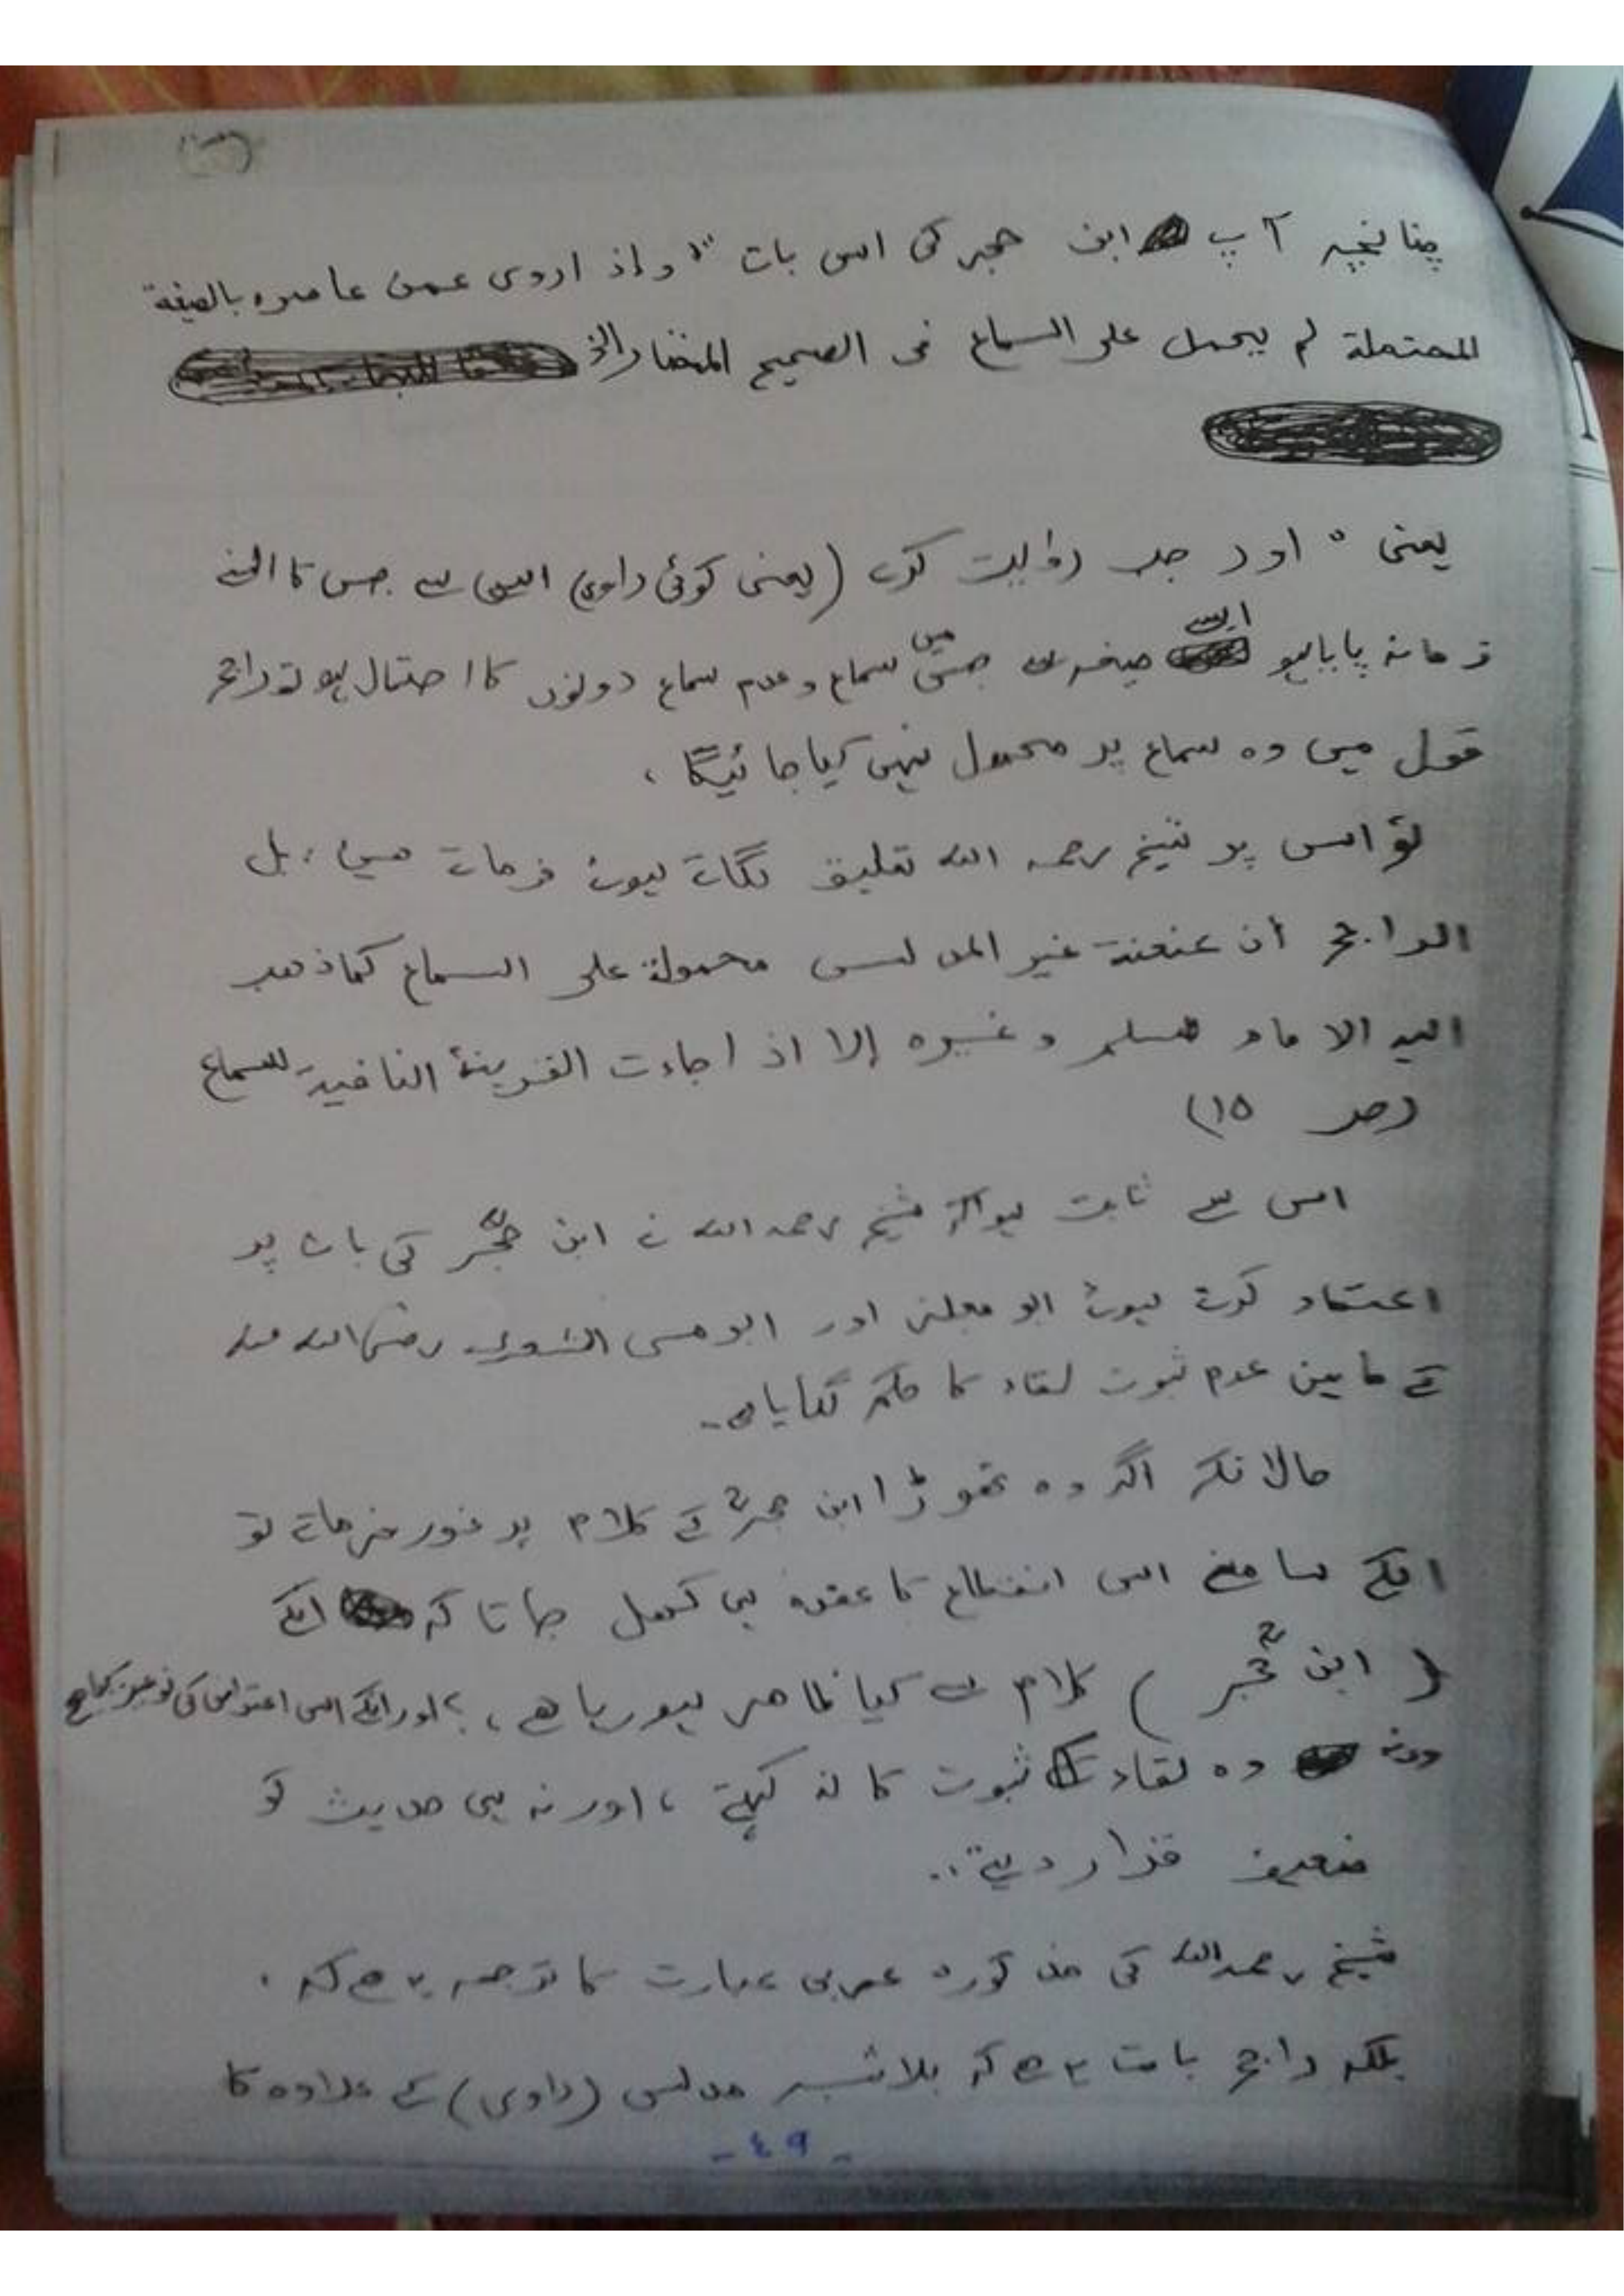 چنانچہ آپ ابن حجر کی اس بات "و اذ اروی عمن عاصرہ بالصیغة
المحتملة لم یحمل علی السماع فی الصحیح المختار الخ
یعنی " اور جب روایت کرے (یعنی کوئی راوی) اس سے جس کا اسنے
زمانہ پایا ہو ایسے صیغہ سے جس میں سماع و عدم سماع دونوں کا احتمال ہو تو راجح
قول میں وہ سماع پر محمول نہیں کیا جائیگا ،
تو اس پر شیخ رحمہ اللہ تعلیق لگاتے ہوئے فرماتے ہیں ، بل
الراجح أن عنعنة غیر المدلس محمولة علی السماع کما ذهب
الیه الامام مسلم و غیره إلا اذ اجاءت القرینة النافیة للسماع
(صـ ١٥)
اس سے ثابت ہوا کہ شیخ رحمہ اللہ نے ابن حجرؒ کی بات پر
اعتماد کرتے ہوئے ابو مجلز اور ابو موسی اشعری رضی اللہ عنہ
کے مابین عدم ثبوت لقاء کا حکم لگایا ہے۔
حالانکہ اگر وہ تھوڑا ابن حجرؒ کے کلام پر غور فرماتے تو
انکے سامنے اس انقطاع کا عقدہ ہی کھل جاتا کہ انکے
( ابن حجرؒ ) کلام سے کیا ظاہر ہورہا ہے ، ؟ اور انکے اس اعتراض کی نوعیت کیا ہے
ورنہ وہ لقاء کے ثبوت کا نہ کہتے ، اور نہ ہی حدیث کو
ضعیف قرار دیتے ..
شیخ رحمہ اللہ کی مذکورہ عربی عبارت کا ترجمہ یہ ہے کہ ،
بلکہ راجح بات یہ ہے کہ بلاشبہ مدلس (راوی) کے علاوہ کا
- ٤٩ -